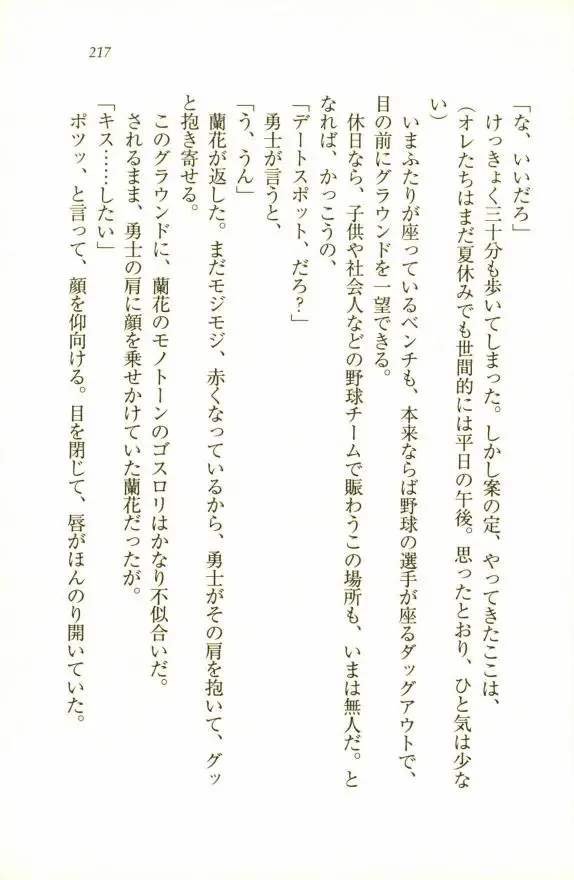 217
「な、いいだろ」
けっきょく三十分も歩いてしまった。しかし案の定、やってきたここは、
（オレたちはまだ夏休みでも世間的には平日の午後。思ったとおり、ひと気は少な
い）
いまふたりが座っているベンチも、本来ならば野球の選手が座るダッグアウトで、
目の前にグラウンドを一望できる。
休日なら、子供や社会人などの野球チームで賑わうこの場所も、いまは無人だ。と
なれば、かっこうの、
「デートスポット、だろ？」
勇士が言うと、
「う、うん」
蘭花が返した。まだモジモジ、赤くなっているから、勇士がその肩を抱いて、グッ
と抱き寄せる。
このグラウンドに、蘭花のモノトーンのゴスロリはかなり不似合いだ。
されるまま、勇士の肩に顔を乗せかけていた蘭花だったが。
「キス……したい」
ポツッ、と言って、顔を仰向ける。目を閉じて、唇がほんのり開いていた。